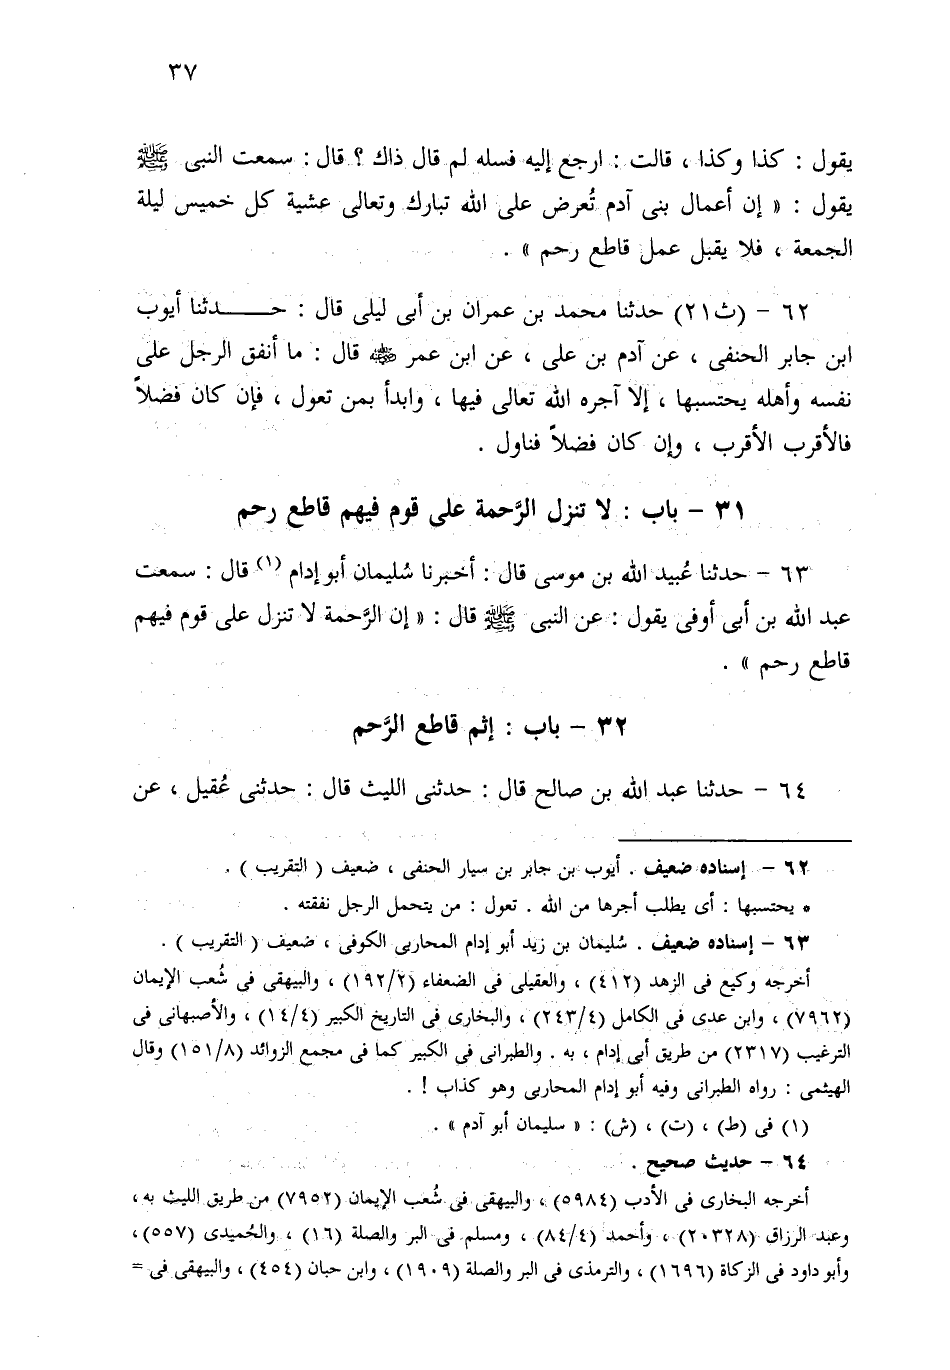 ٣٧
يقول : كذا وكذا ، قالت : ارجع إليه فسله لم قال ذاك ؟ قال : سمعت النبى ﷺ
يقول : « إن أعمال بنى آدم تُعرض على الله تبارك وتعالى عشية كل خميس ليلة
الجمعة ، فلا يقبل عمل قاطع رحم » .
٦٢ - (ث٢١) حدثنا محمد بن عمران بن أبى ليلى قال : حـــــدثنا أيوب
ابن جابر الحنفى ، عن آدم بن على ، عن ابن عمر رضي الله عنه قال : ما أنفق الرجل على
نفسه وأهله يحتسبها ، إلا آجره الله تعالى فيها ، وابدأ بمن تعول ، فإن كان فضلاً
فالأقرب الأقرب ، وإن كان فضلاً فناول .
٣١ - باب : لا تنزل الرَّحمة على قوم فيهم قاطع رحم
٦٣ - حدثنا عُبيد الله بن موسى قال : أخبرنا سُليمان أبو إدام (١) قال : سمعت
عبد الله بن أبى أوفى يقول : عن النبى ﷺ قال : « إن الرَّحمة لا تنزل على قوم فيهم
قاطع رحم » .
٣٢ - باب : إثم قاطع الرَّحم
٦٤ - حدثنا عبد الله بن صالح قال : حدثنى الليث قال : حدثنى عُقيل ، عن
٦٢ - إسناده ضعيف . أيوب بن جابر بن سيار الحنفى ، ضعيف ( التقريب ) .
* يحتسبها : أى يطلب أجرها من الله . تعول : من يتحمل الرجل نفقته .
٦٣ - إسناده ضعيف . سُليمان بن زيد أبو إدام المحاربى الكوفى ، ضعيف ( التقريب ) .
أخرجه وكيع فى الزهد (٤١٢) ، والعقيلى فى الضعفاء (١٩٢/٢) ، والبيهقى فى شُعب الإيمان
(٧٩٦٢) ، وابن عدى فى الكامل (٢٤٣/٤) ، والبخارى فى التاريخ الكبير (١٤/٤) ، والأصبهانى فى
الترغيب (٢٣١٧) من طريق أبى إدام ، به . والطبرانى فى الكبير كما فى مجمع الزوائد (١٥١/٨) وقال
الهيثمى : رواه الطبرانى وفيه أبو إدام المحاربى وهو كذاب ! .
(١) فى (ط) ، (ت) ، (ش) : « سليمان أبو آدم » .
٦٤ - حديث صحيح .
أخرجه البخارى فى الأدب (٥٩٨٤) ، والبيهقى فى شُعب الإيمان (٧٩٥٢) من طريق الليث به ،
وعبد الرزاق (٢٠٣٢٨) ، وأحمد (٨٤/٤) ، ومسلم فى البر والصلة (١٦) ، والحُميدى (٥٥٧) ،
وأبو داود فى الزكاة (١٦٩٦) ، والترمذى فى البر والصلة (١٩٠٩) ، وابن حبان (٤٥٤) ، والبيهقى فى =